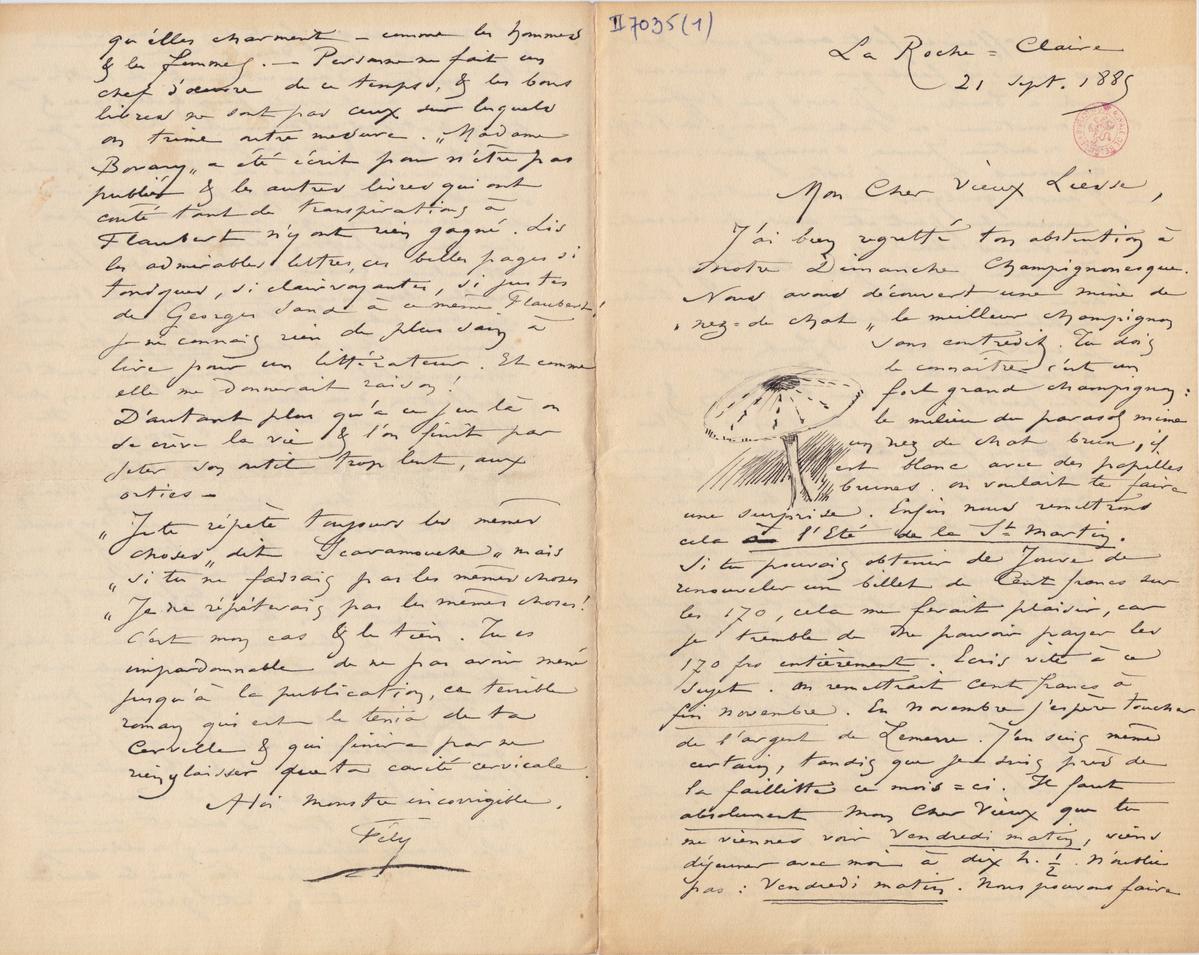 II 7035(1)
La Roche = Claire
21 Sept. 1885
Mon Cher Vieux Liesse,
J'ai bien regretté ton abstention à
notre Dimanche Champignonesque.
Nous avons découvert une mine de
„nez=de chat„ le meilleur champignon
sans contredit. Tu dois
le connaître c'est un
fort grand champignon:
le milieu du parasol mime
un nez de chat brun, il
est blanc avec des papilles
brunes. on voulait te faire
une surprise. Enfin nous remettrons
cela à l'Eté de la St Martin.
Si tu pouvais obtenir de Jouve de
renouveler un billet de Cent francs sur
les 170, cela me ferait plaisir, car
je tremble de ne pouvoir payer les
170 frs entièrement. Ecris vite à ce
sujet. on remettrait cent francs à
fin novembre. En Novembre j'espère toucher
de l'argent de Lemerre. J'en suis même
certain, tandis que je suis près de
la faillitte ce mois=ci. Il faut
absolument Mon Cher Vieux que tu
me viennes voir Vendredi matin, viens
déjeuner avec moi à dix h. 1/2. N'oublie
pas: Vendredi matin. Nous pouvons faire
qu'elles charment – comme les hommes
& les femmes. – Personne ne fait un
chef d'œuvre de ce temps, & les bons
livres ne sont pas ceux sur lesquels
on trime outre mesure. „Madame
Bovary„ a été écrit pour n'être pas
publié & les autres livres qui ont
coûté tant de transpirations à
Flaubert n'y ont rien gagné. Lis
les admirables lettres, ces belles pages si
toniques, si clairvoyantes, si justes
de Georges Sand à ce même Flaubert!
je ne connais rien de plus sain à
lire pour un littérateur. Et comme
elle me donnerait raison!
D'autant plus qu'à ce jeu là on
se crève la vie & l'on finit par
jeter son outil trop lent, aux
orties –
„Je te répète toujours les mêmes
choses„ dit Scaramouche „mais
„si tu ne faisais pas les mêmes choses
„Je ne répéterais pas les mêmes choses!
C'est mon cas & le tien. Tu es
impardonnable de ne pas avoir mené
jusqu'à la publication, ce terrible
roman qui est le ténia de ta
Cervelle & qui finira par ne
rien y laisser que ta cavité cervicale.
A toi monstre incorrigible.
Fély